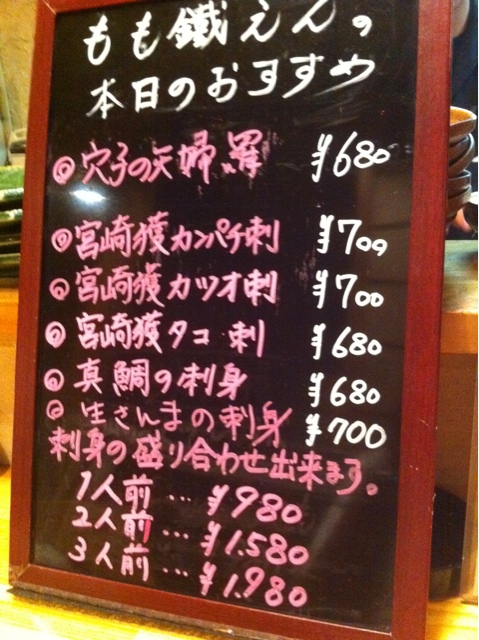 もも鐵えんの
本日のおすすめ
◎穴子の天婦羅 ¥680
◎宮崎獲カンパチ刺 ¥700
◎宮崎獲カツオ刺 ¥700
◎宮崎獲タコ刺 ¥680
◎真鯛の刺身 ¥680
◎生さんまの刺身 ¥700
刺身の盛り合わせ出来ます。
1人前…¥980
2人前…¥1.580
3人前…¥1.980